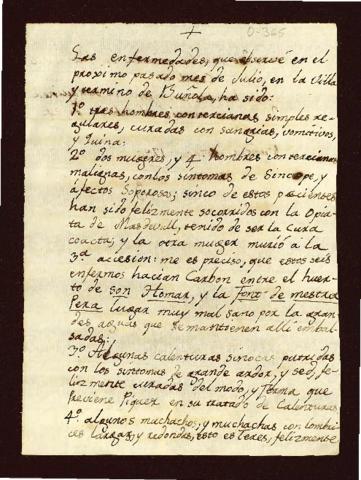 +
0-365
Las enfermedades, que observé en el
proximo pasado mes de Julio, en la Villa
y termino de Buñola, ha sido:
1º tres hombres con tercianas simples re-
gulares, curadas con sangrias, vomitivos,
y Quina:
2º dos mugeres, y 4 hombres con tercianas
malignas, con los sintomas de Sincope, y
afectos soporosos; sinco de estos pacientes
han sido felizmente socorridos con la Opia-
ta de
temido de ser la Cura
coacta; y la otra muger murió á la
3ª accesion: me es preciso, que estos seis
enfermos hacian Carbon entre el huer-
to de son Homar, y la Font de mestra
Pera lugar muy mal sano por la gran-
des aguas que se mantienen alli embal-
sadas:
3º Algunas calenturas sinocas putridas
con los sintomas de grande ardor, y sed, fe-
lizmente curadas del modo, y forma que
Previene Piquer en su tratado de Calenturas
4º algunos muchachos, y muchachas con lombri-
ces largas, y redondas, esto es teres, felizmente